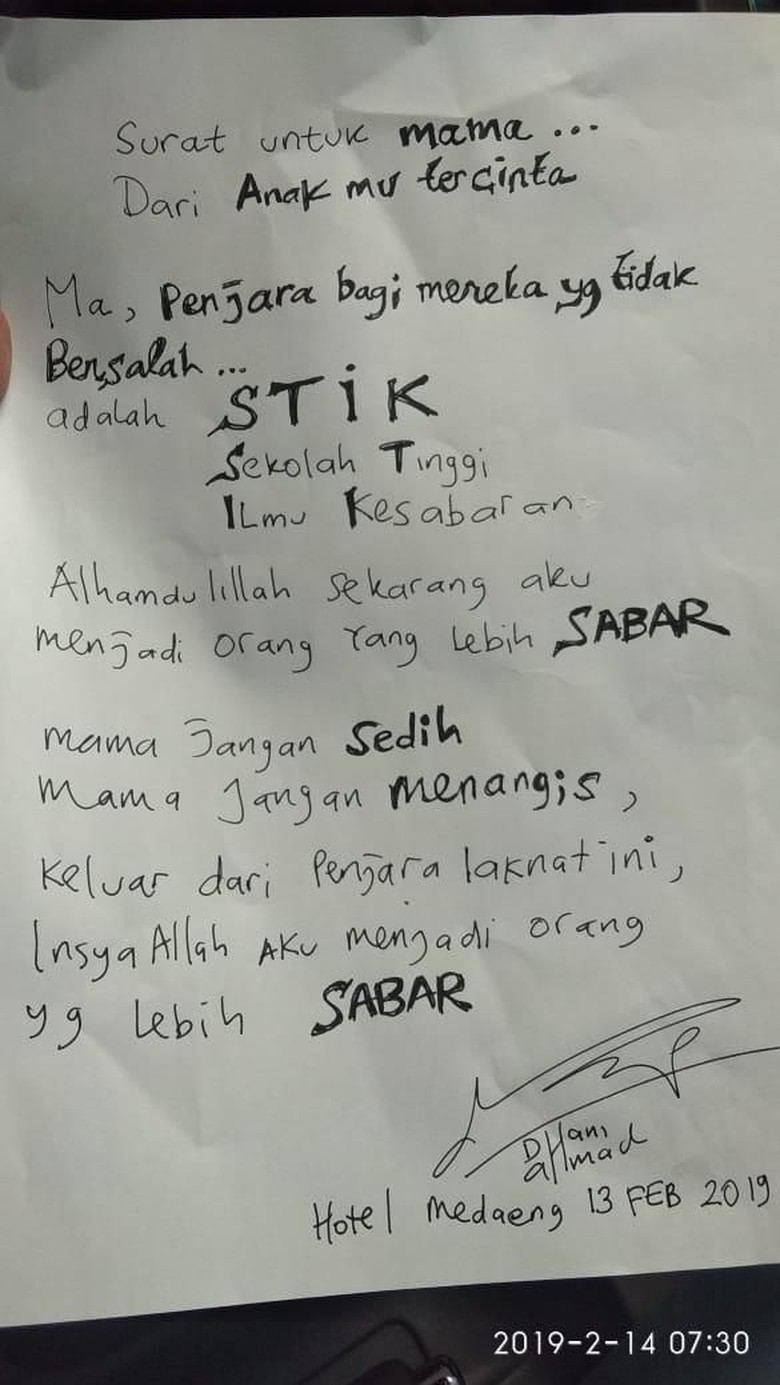 Surat untuk mama ...
Dari Anak mu tercinta
Ma, Penjara bagi mereka yg tidak
Bersalah ...
adalah STIK
Sekolah Tinggi
ILmu Kesabaran
Alhamdulillah sekarang aku
menjadi orang Yang Lebih SABAR
mama Jangan Sedih
Mama Jangan menangis,
Keluar dari Penjara laknat ini,
InsyaAllah AKu menjadi orang
yg Lebih SABAR
DHani
aHmad
Hotel medaeng 13 FEB 2019
2019-2-14 07:30